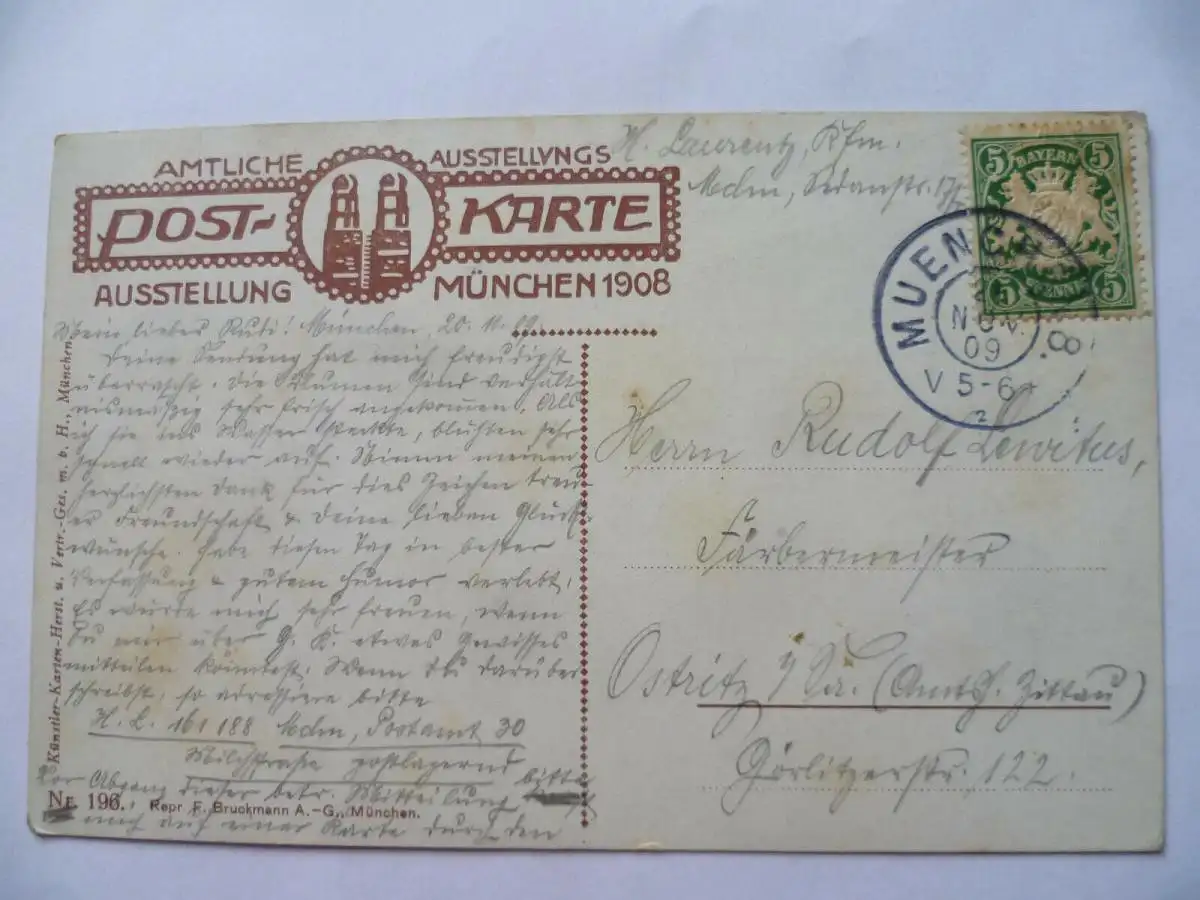 AMTLICHE AUSSTELLVNGS
POST- KARTE
AUSSTELLUNG MÜNCHEN 1908
H. Laurentz, Kfm.
Mchn, Sedanstr.
5 BAYERN 5
5 PFENNIG 5
MUENCHEN
NOV.
09
V 5-6
.8.
2
Mein lieber Rudi! München, 20.11.09.
Deine Sendung hat mich freudigst
überrascht. Die Blumen sind verhält-
nismäßig sehr frisch angekommen. Als
ich sie ins Wasser steckte, blühten sehr
schnell wieder auf. Nimm meinen
herzlichsten Dank für dies Zeichen treu-
er Freundschaft & Deine lieben Glück-
wünsche. Habe diesen Tag in bester
Verfassung & gutem Humor verlebt.
Es würde mich sehr freuen, wenn
Du mir über G. K. etwas Gewisses
mitteilen könntest. Wenn Du darüber
schreibst, so adressiere bitte
H. L. 161 188 Mchn, Postamt 30
Milchstraße postlagernd
Vor Abgang dieser betr. Mitteilung bitte
mich auf einer Karte durch den
Herrn Rudolf Lewitus,
Färbermeister
Ostritz i/Sa. (Amtsh. Zittau)
Görlitzerstr. 122.
Künstler-Karten-Herst. u. Vertr.-Ges. m. b. H., München.
Nr. 196. Repr. F. Bruckmann A.-G., München.